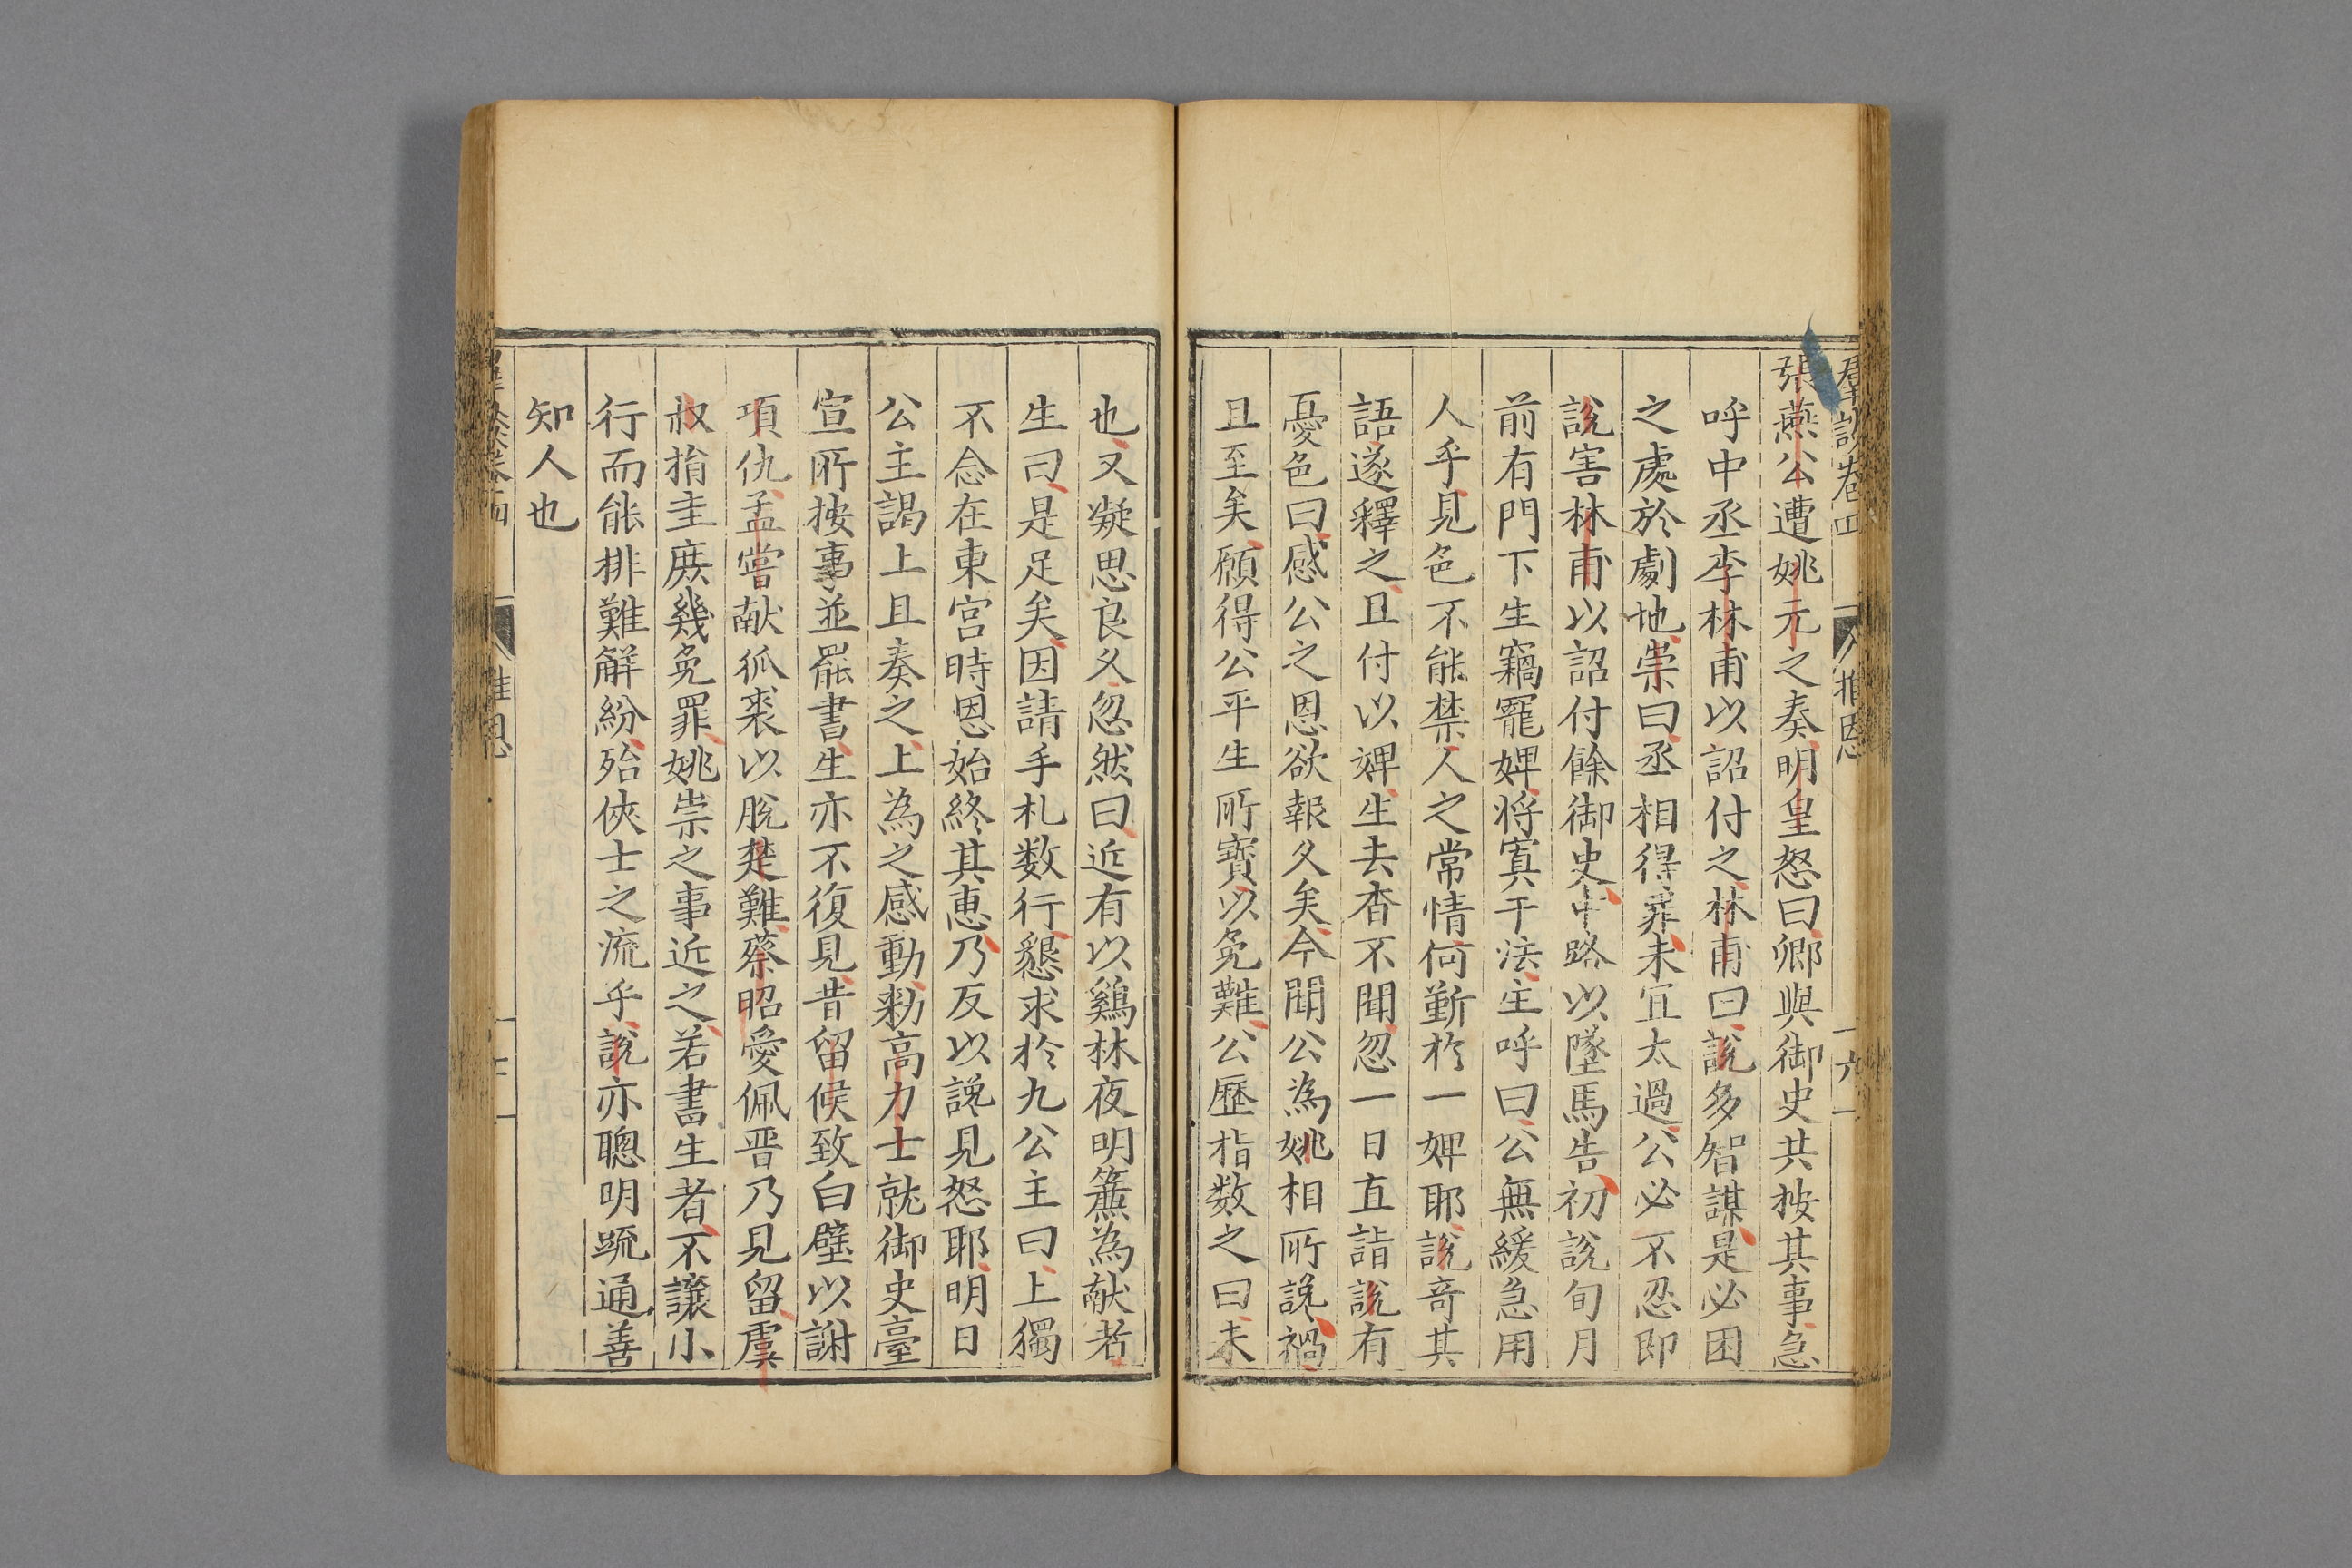 羣談卷四 推恩 六
張燕公遭姚元之奏明皇怒曰卿與御史共按其事急
呼中丞李林甫以詔付之林甫曰說多智謀是必困
之處於劇地崇曰丞相得罪未宜太過公必不忍即
說害林甫以詔付餘御史中路以墜馬告初說旬月
前有門下生竊寵婢將寘于法生呼曰公無緩急用
人乎見色不能禁人之常情何靳於一婢耶說竒其
語遂釋之且付以婢生去杳不聞忽一日直詣說有
憂色曰感公之恩欲報久矣今聞公為姚相所讒禍
且至矣願得公平生所寶以免難公歷指数之曰未
也又凝思良久忽然曰近有以鷄林夜明簾為献者
生曰是足矣因請手札数行懇求於九公主曰上獨
不念在東宮時恩始終其恵乃反以讒見怒耶明日
公主謁上且奏之上為之感動勑高力士就御史臺
宣所按事並罷書生亦不復見昔留侯致白璧以謝
項仇孟嘗献狐裘以脫楚難蔡昭愛佩晋乃見留虞
叔指圭庶幾免罪姚崇之事近之若書生者不讓小
行而能排難解紛殆俠士之流乎說亦聰明疏通善
知人也